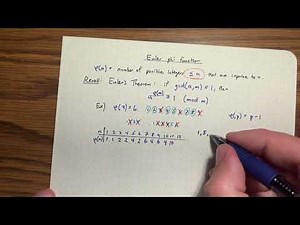 Euler phi function
φ(n) = number of positive integers ≤ n that are coprime to n.
Recall: Euler's Theorem: if gcd(a,m)=1, then
a^φ(m) ≡ 1 (mod m)
Ex) φ(9) = 6 1 2 3 4 5 6 7 8 9 φ(p) = p-1
n 1 2 3 4 5 6 7 8 9 10 11 12 1, 5,
φ(n) 1 1 2 2 4 2 6 4 6 4 10